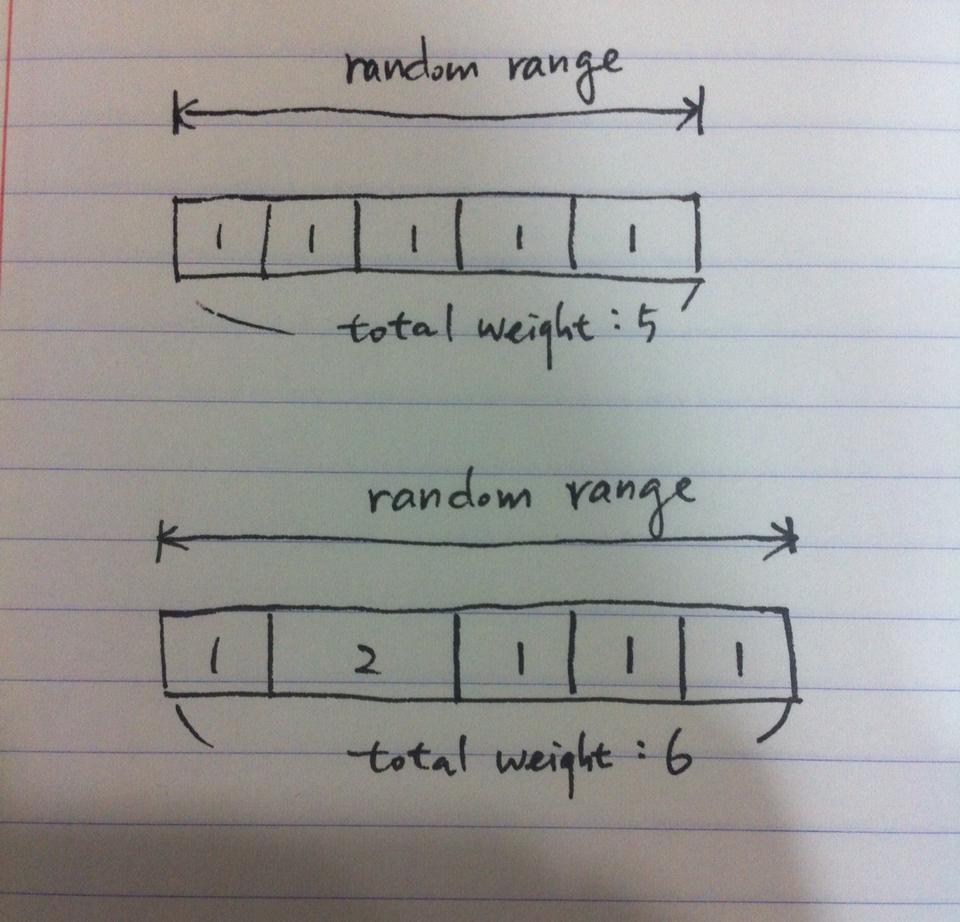 random range
1 1 1 1 1
total weight : 5
random range
1 2 1 1 1
total weight : 6